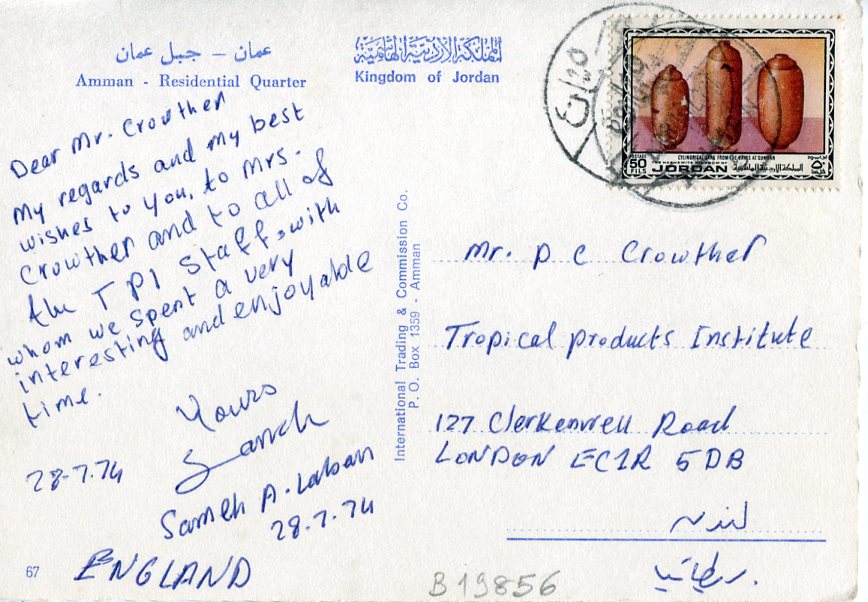 عمان – جبل عمان
Amman - Residential Quarter
المملكة الأردنية الهاشمية
Kingdom of Jordan
Dear Mr. Crowther
My regards and my best
wishes to you, to Mrs.
Crowther and to all of
the TPI Staff, with
whom we spent a very
interesting and enjoyable
time.
Yours
Sameh
28-7.74
Sameh A. Laban
28.7.74
ENGLAND
67
International Trading & Commission Co.
P. O. Box 1359 - Amman
POSTAGE
50
FILS
THE HASHEMITE KINGDOM OF
JORDAN
المملكة الاردنية الهاشمية
Mr. P C Crowther
Tropical products Institute
127 Clerkenwell Road
LONDON EC1R 5DB
لندن
بريطانيا
B19856